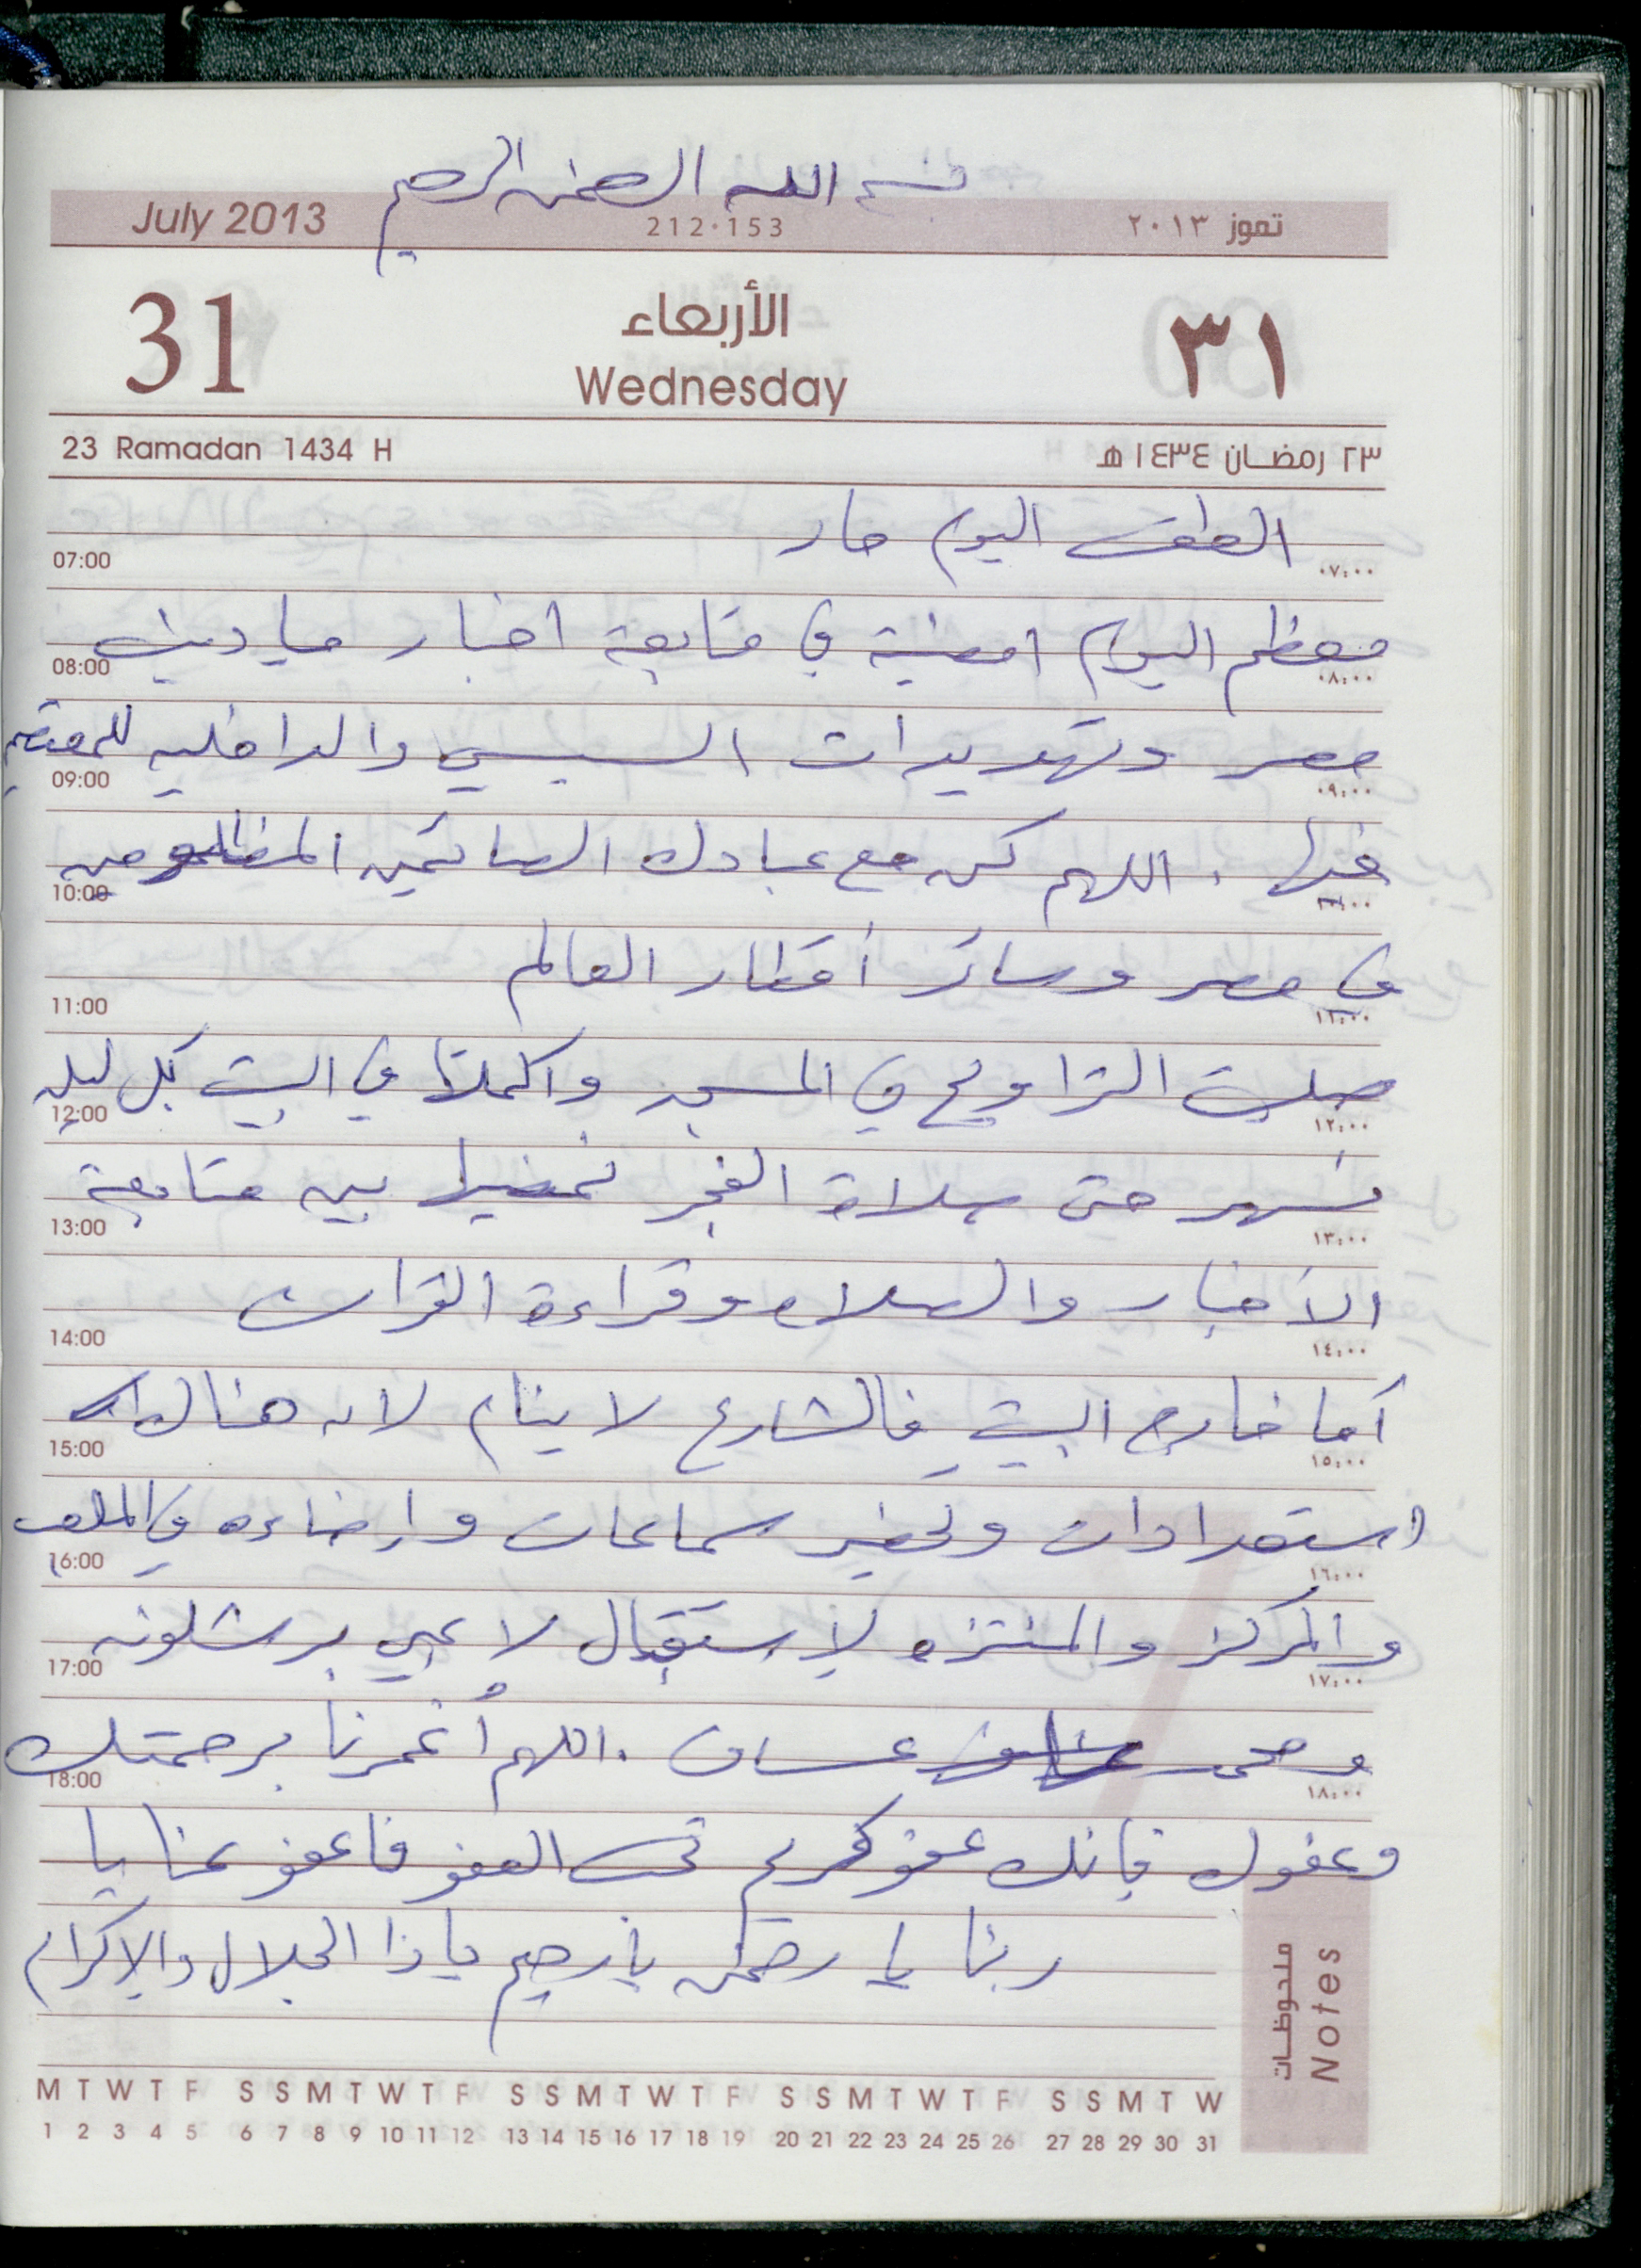 بسم الله الرحمن الرحيم
July 2013 212·153 تموز ٢٠١٣
31 الأربعاء ٣١
Wednesday
23 Ramadan 1434 H ٢٣ رمضان ١٤٣٤ هـ
الطقس اليوم حار
07:00 ٠٧:٠٠
معظم اليوم امضيته في متابعة اخبار ميادين
08:00 ٠٨:٠٠
مصر وتهديدات السيسي والداخليه للمعتصمين
09:00 ٠٩:٠٠
فيها . اللهم كن مع عبادك الصائمين المظلومين
10:00 ١٠:٠٠
في مصر وسائر أقطار العالم
11:00 ١١:٠٠
صليت التراويح في المسجد واكملنا في البيت كل ليله
12:00 ١٢:٠٠
نسهر حتى صلاة الفجر نمضيها بين متابعة
13:00 ١٣:٠٠
الأخبار والصلاه وقراءة القران
14:00 ١٤:٠٠
أما خارج البيت فالشارع لا ينام لانه هنالك
15:00 ١٥:٠٠
استعدادات وتحضير سماعات وإضاءه في الملعب
16:00 ١٦:٠٠
والمركز والمنتزه لإستقبال لاعبي برشلونه
17:00 ١٧:٠٠
ومحمد عساف . اللهم أغمرنا برحمتك
18:00 ١٨:٠٠
وعفوك فإنك عفو كريم تحب العفو فاعفو عنا يا
ربنا يا رحمن يا رحيم ياذا الجلال والإكرام
ملحوظات Notes
M T W T F S S M T W T F S S M T W T F S S M T W T F S S M T W
1 2 3 4 5 6 7 8 9 10 11 12 13 14 15 16 17 18 19 20 21 22 23 24 25 26 27 28 29 30 31